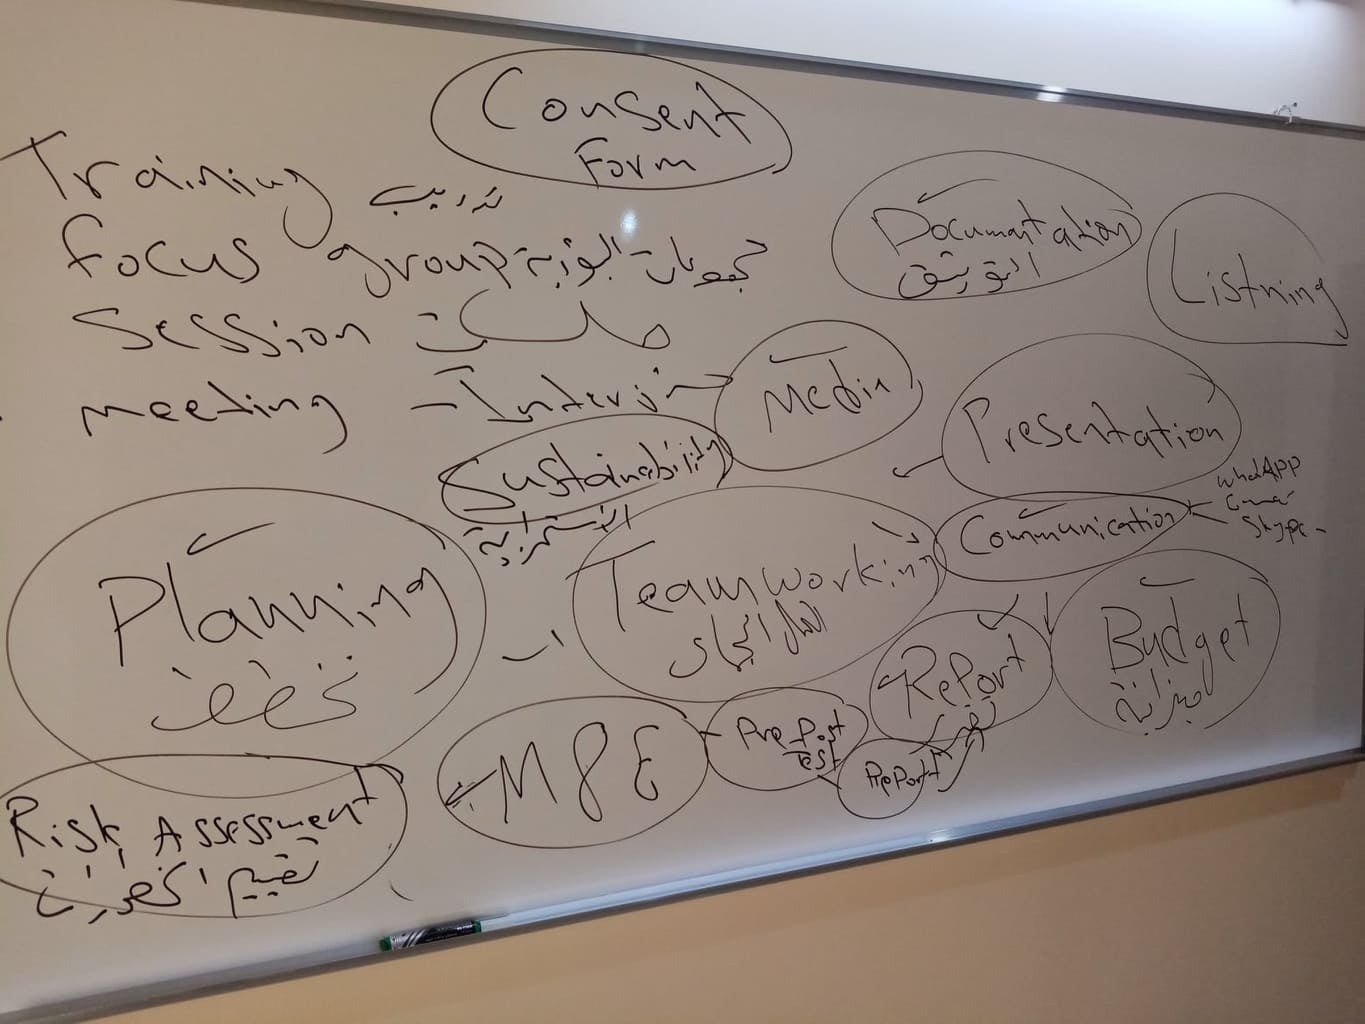 Consent
Form
Training تدريب
Focus group مجموعات البؤرية
Session جلسات
meeting -
Documentation
التوثيق
Listning
Media
Presentation
Sustainability
الأستمرارية
Communication
WhatAPP
Skype -
Planning
Teamworking
العمل الجماعي
Budget
ميزانية
Report
تقرير
M&E
Pre Post
Test
Risk Assessment
تقييم